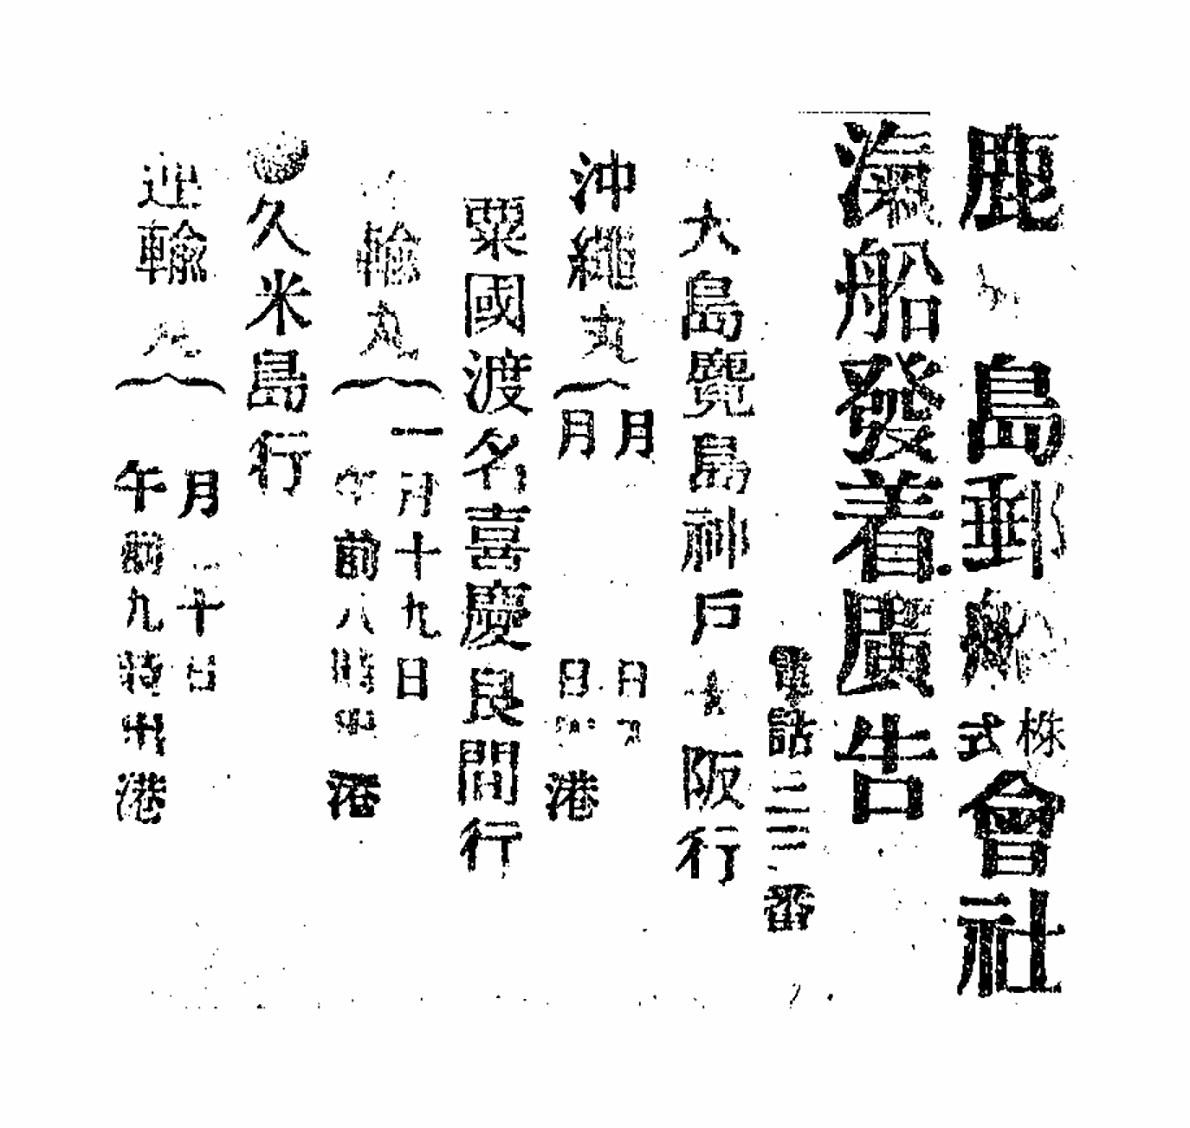 鹿島郵船株式會社
滊船發着廣告
電話三三番
大島鹿島神戸大阪行
沖繩丸
月 日
月 日 港
粟國渡名喜慶良間行
輸丸
一月十九日
午前八時出港
久米島行
運輸丸
月二十日
午前九時出港